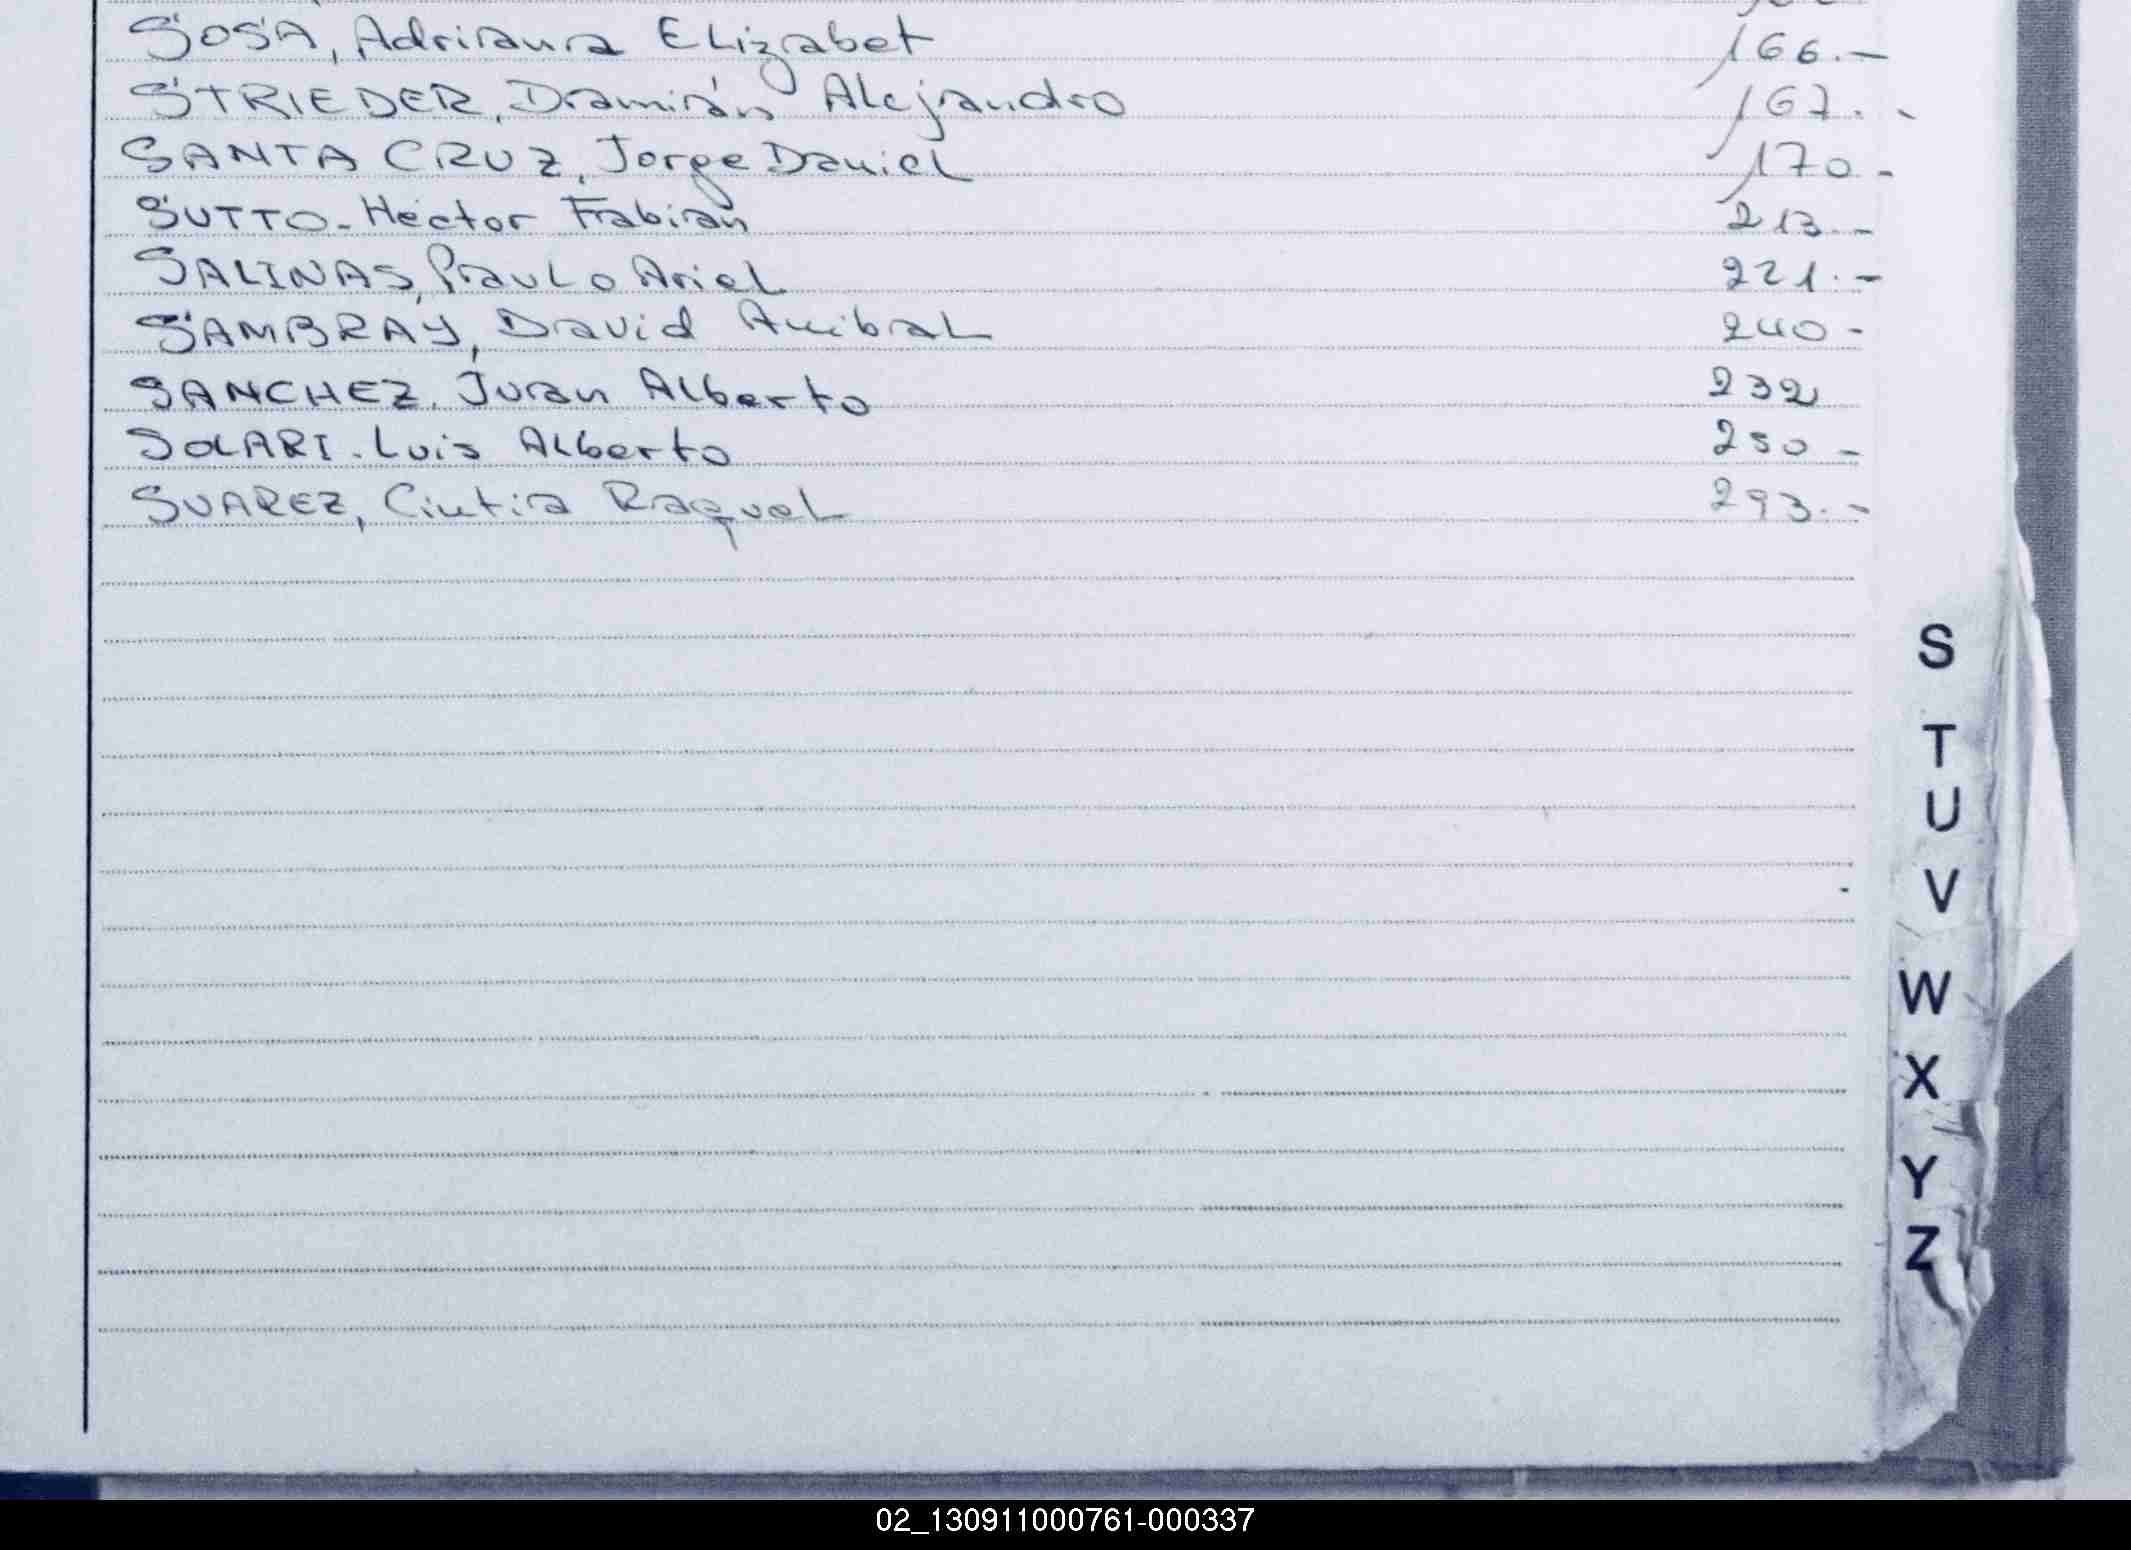 SOSA, Adriana Elizabet 166.-
STRIEDER, Damián Alejandro 167.-
SANTA CRUZ, Jorge Daniel 170-
SUTTO-Héctor Fabián 213.-
SALINAS, Paulo Ariel 221.-
SAMBRAY, David Anibal 240-
SANCHEZ, Juan Alberto 232
SOLARI. Luis Alberto 250-
SUAREZ, Cintia Raquel 293.-
S
T
U
V
W
X
Y
Z
02_130911000761-000337